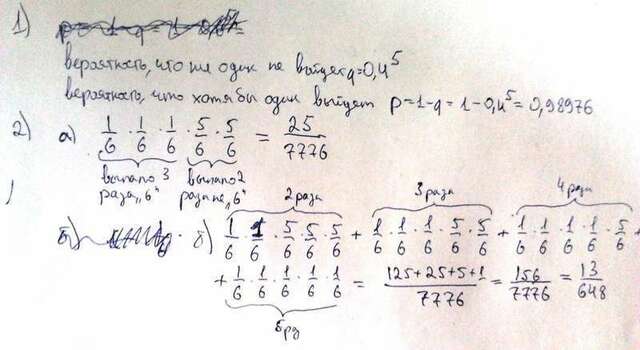 1)
вероятность, что ни один не выйдет q=0,4^5
вероятность, что хотя бы один выйдет p=1-q=1-0,4^5=0,98976
2) а) 1/6 · 1/6 · 1/6 · 5/6 · 5/6 = 25/7776
выпало 3 раза „6“ выпало 2 раза не „6“
2 раза 3 раза 4 раза
б) 1/6 · 1/6 · 5/6 · 5/6 · 5/6 + 1/6 · 1/6 · 1/6 · 5/6 · 5/6 + 1/6 · 1/6 · 1/6 · 1/6 · 5/6 +
+ 1/6 · 1/6 · 1/6 · 1/6 · 1/6 = 125+25+5+1/7776 = 156/7776 = 13/648